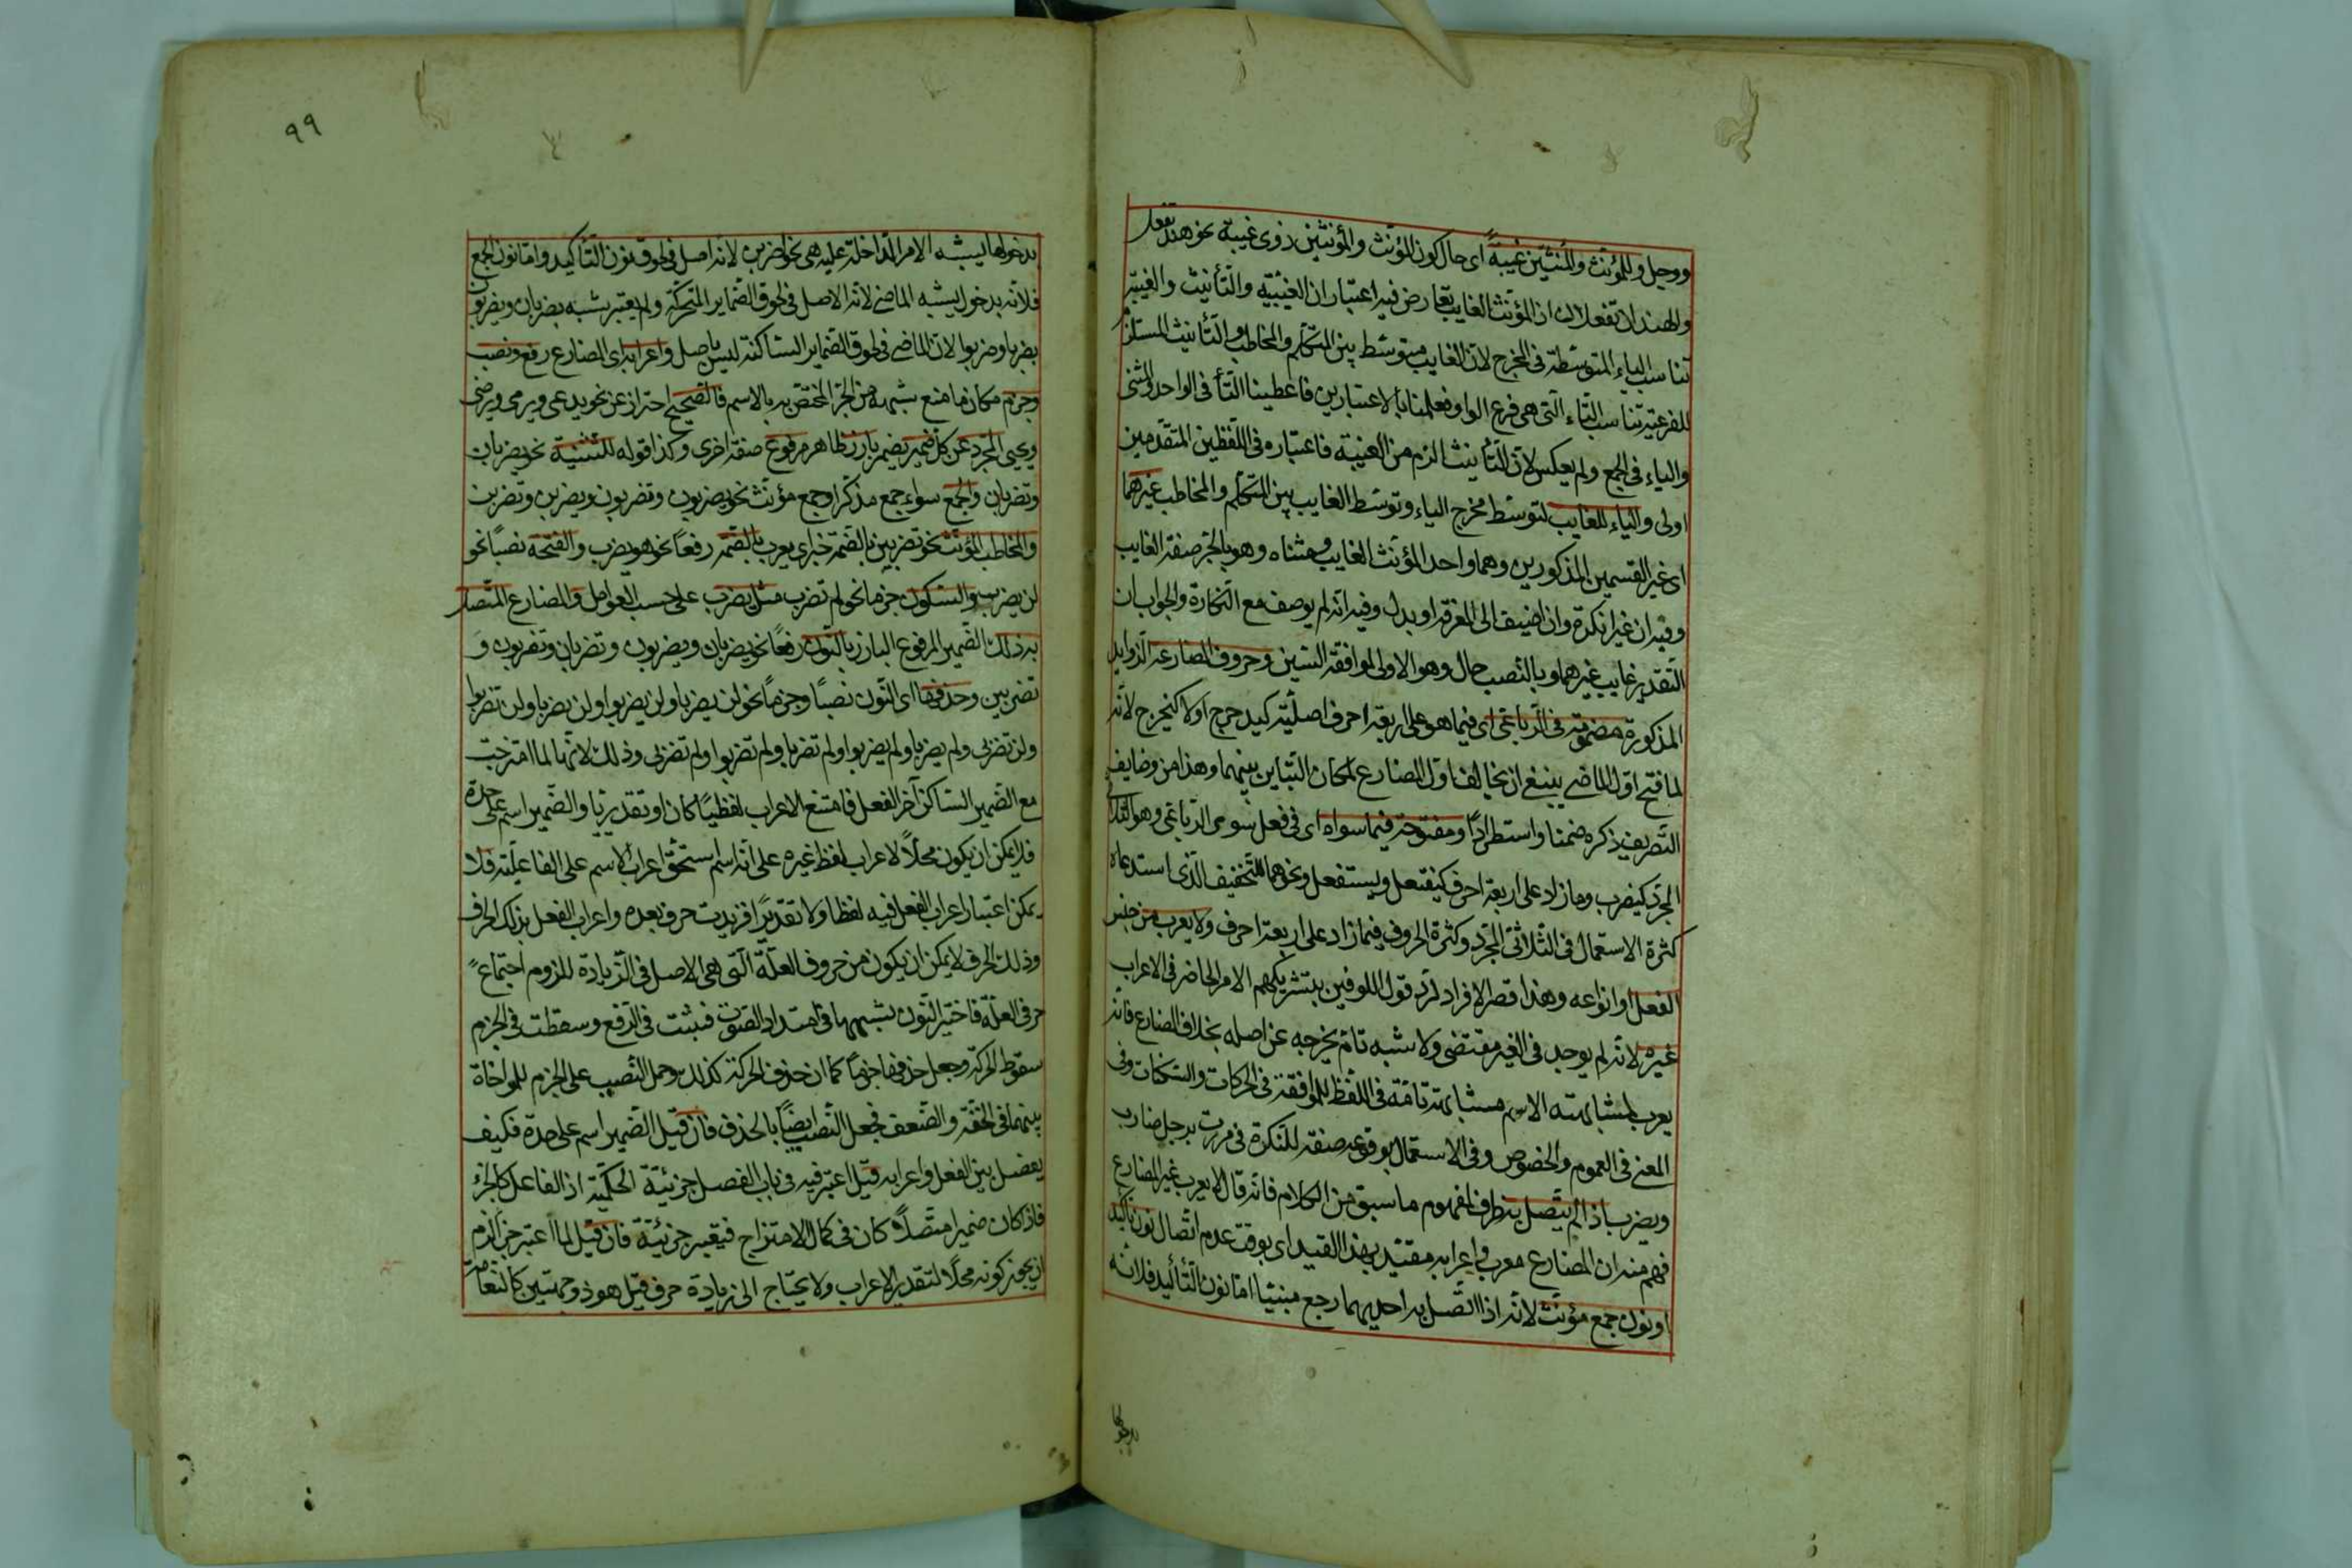 ووحل وللمؤنث والمؤنثين غيبة اى حال كون المؤنث والمؤنثين ذوى غيبة نحو هند تفعل
والهندان تفعلان اذ المؤنث الغايب تعارض فيه اعتباران الغيبة والتأنيث والغيبة
تناسب الياء المتوسطة فى المخرج لان الغايب متوسط بين المتكلم والمخاطب والتأنيث المستلزم
للفرعية تناسب التاء التى هى فرع الواو فعلمنا بالاعتبارين فاعطينا التأ فى الواحد والمثنى
والياء فى الجمع ولم يعكس لان التأنيث الزم من الغيبة فاعتباره فى اللفظين المتقدمين
اولى والياء للغايب لتوسط مخرج الياء وتوسط الغايب بين المتكلم والمخاطب غيرهما
اى غير القسمين المذكورين وهما واحد المؤنث الغايب ومثناه وهو بالجر صفة الغايب
وفيه ان غير نكرة وان اضيف الى المعرفة او بدل وفيه انه لم يوصف مع النكارة والجواب ان
التقدير غايب غيرهما وبالنصب حال وهو الاولى لموافقة السين وحروف المضارعة الزوايد
المذكورة مضمومة فى الرباعى اى فيما هو على اربعة احرف اصلية كيدحرج اولا كيخرج لانه
لما فتح اول الماضى ينبغى ان يخالف اول المضارع لمكان التباين بينهما وهذا من وضايف
التصريف ذكره ضمنا واستطرادًا ومفتوحة فيما سواه اى فى فعل سوى الرباعى وهو الثلاثى
المجرد كيضرب وما زاد على اربعة احرف كيفتعل ويستفعل ونحوهما للتخفيف الذى استدعاه
كثرة الاستعمال فى الثلاثى المجرد وكثرة الحروف فيما زاد على اربعة احرف ولا يعرب من جنس
الفعل او انواعه وهذا قصر الافراد لرد قول الكوفيين بتشريكهم الامر الحاضر فى الاعراب
غيره لانه لم يوجد فى الغير مقتضى ولا شبه تام يخرجه عن اصله بخلاف المضارع فانه
يعرب لمشابهته الاسم مشابهة تامة فى اللفظ للموافقة فى الحركات والسكنات وفى
المعنى فى العموم والخصوص وفى الاستعمال لوقوعه صفة للنكرة فى مررت برجل ضارب
ويضرب اذا لم يتصل به ظرف لمفهوم ما سبق من الكلام فانه قال لا يعرب غير المضارع
فهم منه ان المضارع معرب واعرابه مقيد بهذا القيد اى بوقت عدم اتصال نون تأكيد
او نون جمع مؤنث لانه اذا اتصل به احديهما رجع مبنيا اما نون التأكيد فلانه
بدخولها
٩٩
بدخولها يشبه الامر الداخلة عليه هى نحو اضربن لانه اصل فى لحوق نون التأكيد واما نون الجمع
فلانه بدخوله يشبه الماضى لانه الاصل فى لحوق الضماير المتحركة ولم يعتبر شبه يضربان ويضربون
بضربا وضربوا لان الماضى فى لحوق الضماير الساكنة ليس باصل واعرابه اى المضارع رفع ونصب
وجزم مكان ما منع شبهه من الجر المختص به بالاسم فالصحيح احتراز عن نحو يدعى ويرمى ويرضى
ويحيى المجرد عن كل ضمير يضمر بارز ظاهر مرفوع صفة اخرى وكذا قوله للتثنية نحو يضربان
وتضربان والجمع سواء جمع مذكر او جمع مؤنث نحو يضربون وتضربون ويضربن وتضربن
والمخاطب المؤنث نحو تضربين بالضمة خبر اى يعرب بالضمة رفعا نحو هو يضرب والفتحة نصبًا نحو
لن يضرب والسكون جزما نحو لم تضرب مثل يضرب على حسب العوامل والمضارع المتصل
به ذلك الضمير المرفوع البارز بالنون رفعًا نحو يضربان ويضربون وتضربان وتضربون و
تضربين وحذفها اى النون نصبًا وجزمًا نحو لن يضربا ولن يضربوا ولن تضربا ولن تضربوا
ولن تضربى ولم يضربا ولم يضربوا ولم تضربا ولم تضربوا ولم تضربى وذلك لانها لما امتزجت
مع الضمير الساكن آخر الفعل فامتنع الاعراب لفظيًا كان او تقديريًا والضمير اسم على حدة
فلا يمكن ان يكون محلًا لاعراب لفظ غيره على انه اسم استحق اعراب الاسم على الفاعلية فلا
يمكن اعتبار اعراب الفعل فيه لفظا ولا تقديرًا فزيدت حرف بعده واعراب الفعل بذلك الحرف
وذلك الحرف لا يمكن ان يكون من حروف العلة التى هى الاصل فى الزيادة للزوم اجتماع
حرفى العلة فاختير النون بشبهها فى امتداد الصوت فثبتت فى الرفع وسقطت فى الجزم
سقوط الحركة وجعل حذفها جزمًا كما ان حذف الحركة كذلك وحمل النصب على الجزم للمواخاة
بينهما فى الخفة والضعف فجعل النصب ايضًا بالحذف فان قيل الضمير اسم على حدة فكيف
يفصل بين الفعل واعرابه قيل اعتبر فيه فى باب الفصل جزئية الحكمية اذ الفاعل كالجزء
فاذا كان ضميرا متصلًا كان فى كمال الامتزاج فيقعبر جزئية فان قيل لما اعتبر جزأ لزم
ان يجوز كونه محلًا لتقدير الاعراب ولا يحتاج الى زيادة حرف قيل هو ذو جهتين كالنعامة